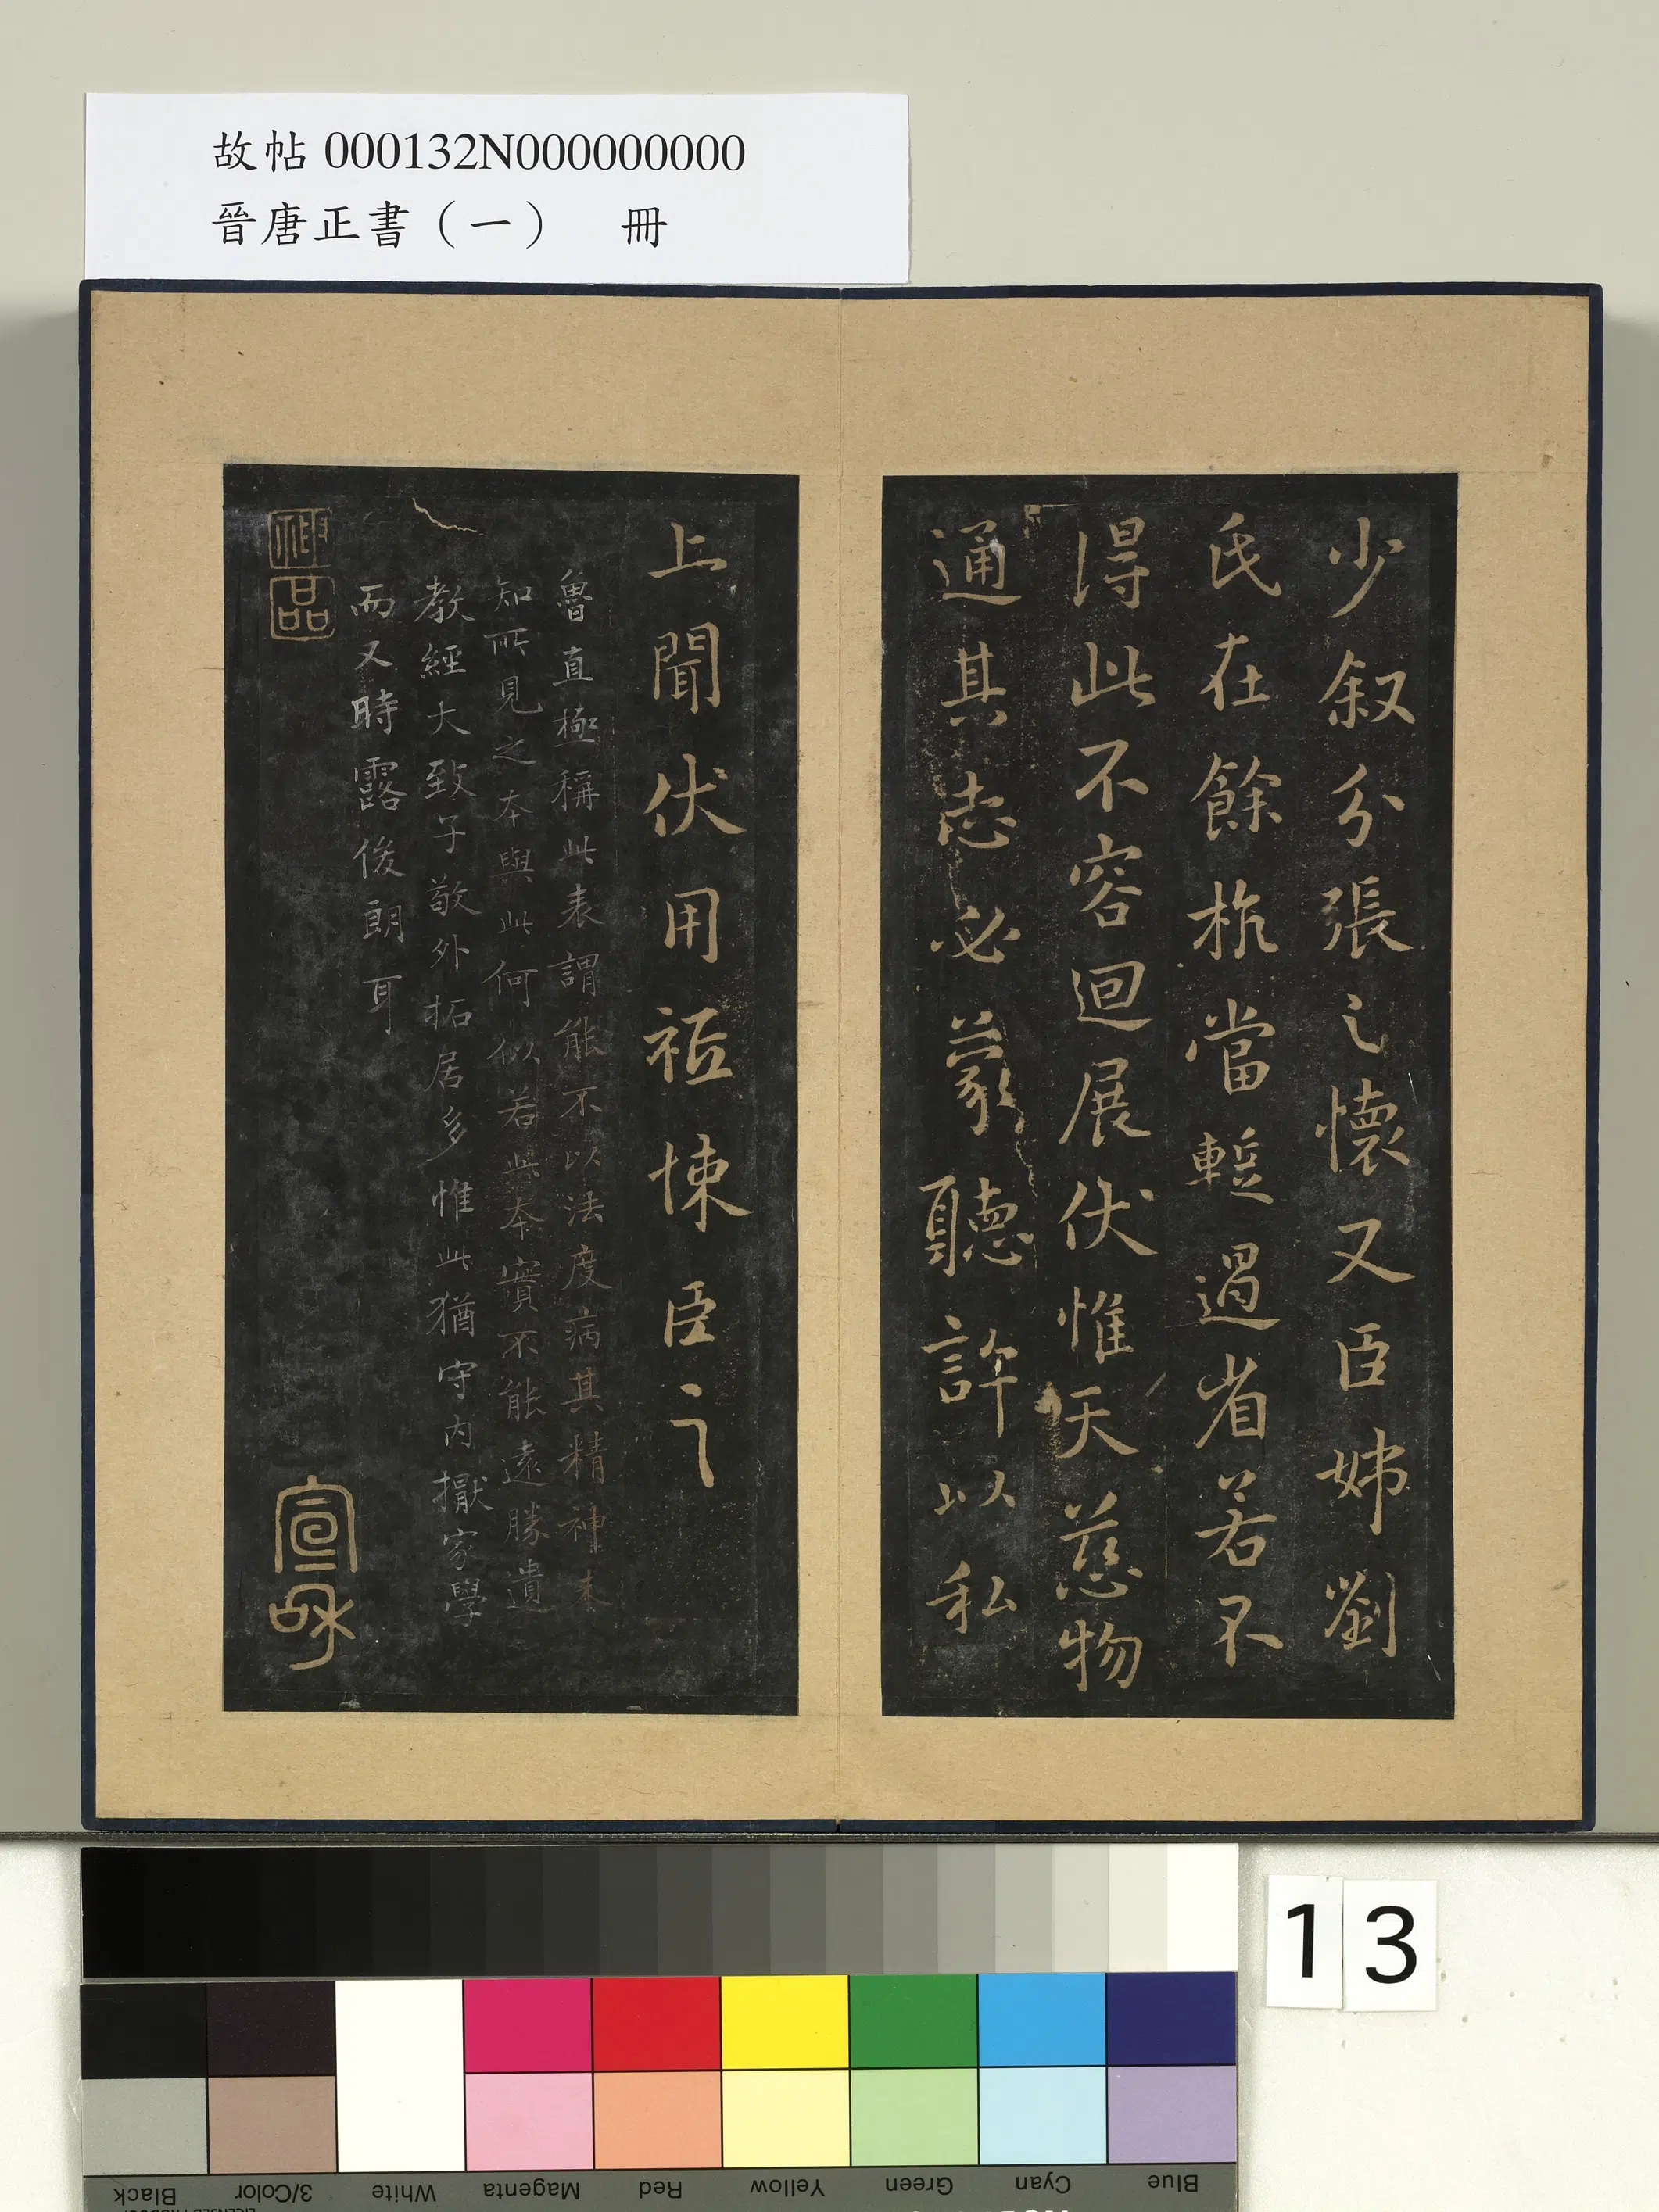 故帖 000132N000000000
晉唐正書（一） 冊
少叙分張之懷又臣姊劉
氏在餘杭當蹔過省若不
得此不容迴展伏惟天慈物
通其志必蒙聽許以私
上聞伏用祗悚臣之
魯直極稱此表謂能不以法度病其精神未
知所見之本與此何似若此本實不能遠勝遺
教經大致子敬外拓居多惟此猶守內擫家學
而又時露俊朗耳
13
Black
3/Color
White
Magenta
Red
Yellow
Green
Cyan
Blue